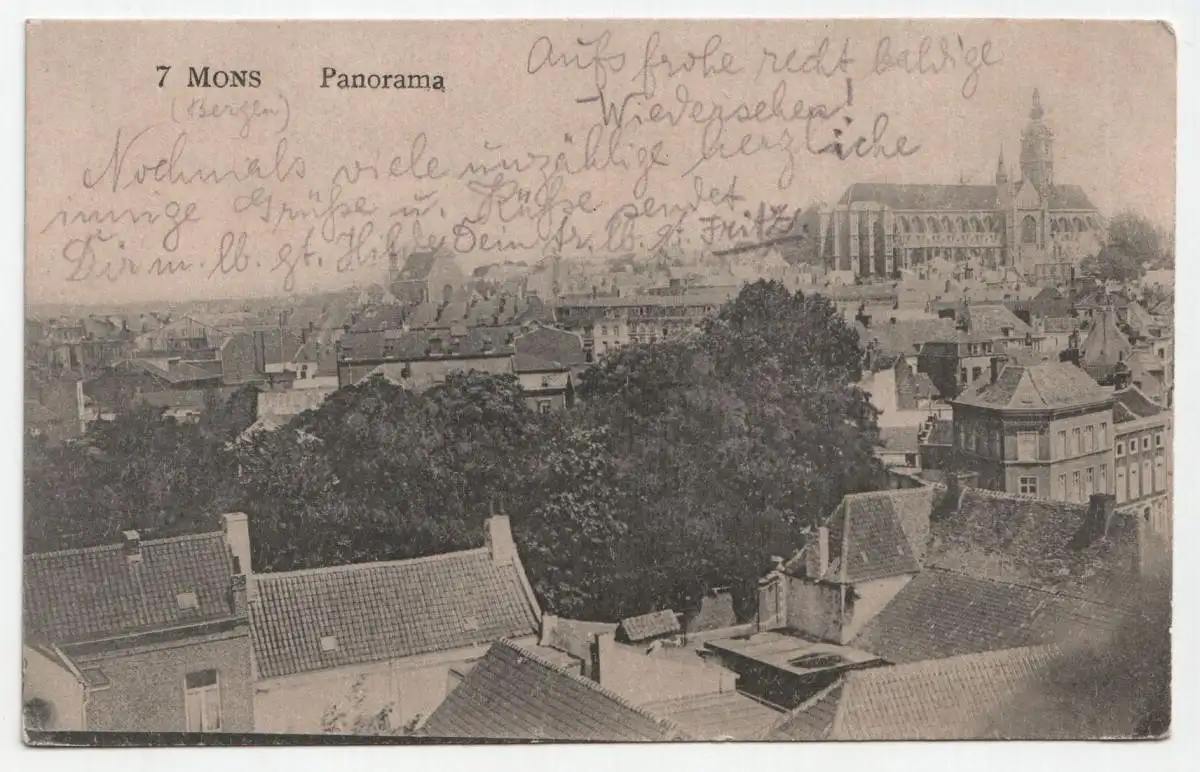 7 MONS Panorama
(Bergen)
Aufs frohe recht baldige
Wiedersehen!
Nochmals viele unzählige herzliche
innige Grüße u. Küße sendet
Dir m. lb. gt. Hilde Dein tr. lb. gt. Fritz